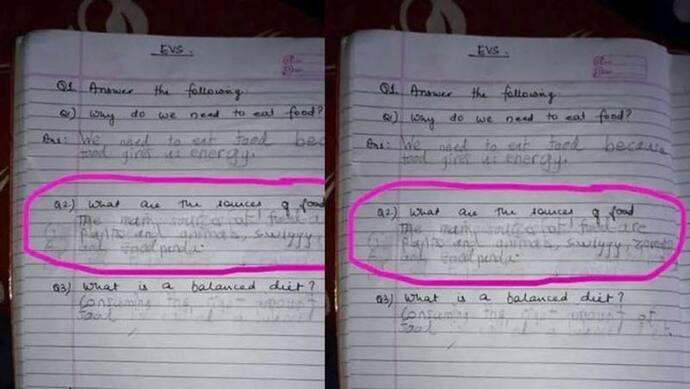 EVS.
Q1 Answer the following.
Q1) Why do we need to eat food?
Ans: We need to eat food because
food gives us energy.
Q2.) What are the sources of food
The main sources of food are
plants and animals, swiggy,
and foodpanda.
Q3) What is a balanced diet?
Consuming the right amount
food
EVS.
Q1 Answer the following.
Q1) Why do we need to eat food?
Ans: We need to eat food because
food gives us energy.
Q2) What are the sources of food
The main sources of food are
plants and animals, swiggy, zomato
and foodpanda.
Q3) What is a balanced diet?
Consuming the right amount of
food is called a balanced diet.